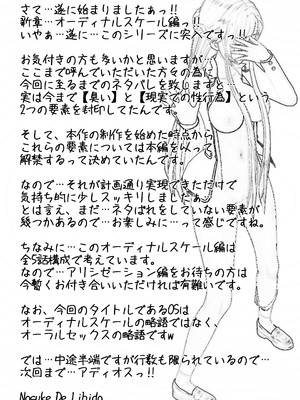 さて…遂に始まりましたぁっ!!
新章…オーディナルスケール編っ!!
いやぁ…遂に…このシリーズに突入ですっ!!
お気付きの方も多いかと思いますが…
ここまで呼んでいただいた方々の為に
今回に至るまでのネタバレを致しますと
実は今まで【臭い】と【現実での性行為】という
2つの要素を封印してたんです。
そして、本作の制作を始めた時点から
これらの要素については本編を以って
解禁するって決めていたんです。
なので…それが計画通り実現できただけで
気持ち的に少しスッキリしましたぁ〜
とは言え、まだ…ネタばれをしていない要素が
幾つかあるので…お楽しみに…って感じですね。
ちなみに…このオーディナルスケール編は
全5話構成で考えています。
なので…アリシゼーション編をお待ちの方は
今暫くお付き合いいただければ有難いです。
なお、今回のタイトルであるOSは
オーディナルスケールの略語ではなく、
オーラルセックスの略語ですw
では…中途半端ですが行数も限られているので…
次回まで…アディオスっ!!
Nosuke De Libido